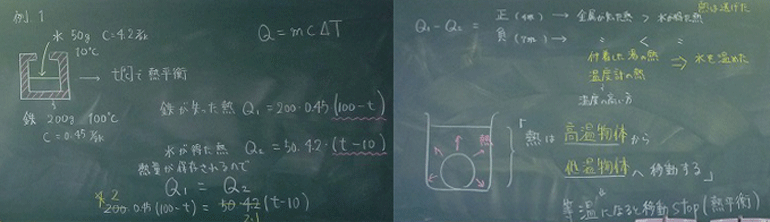 例1
水 50g C=4.2 J/gk
10℃
→ t[℃]で熱平衡
鉄 200g 100℃
C=0.45 J/gk
Q=mCΔT
鉄が失った熱 Q₁=200・0.45(100-t)
水が得た熱 Q₂=50・4.2・(t-10)
熱量が保存されるので
Q₁ = Q₂
4 2
200・0.45(100-t) = 50・4.2(t-10)
2.1
Q₁-Q₂ =
正 → 金属が失った熱 > 水が得た熱
負 → 〃 < 〃
熱は逃げた
付着した湯の熱
温度計の熱
⇒ 水を温めた
温度の高い方
熱
「熱は 高温物体 から
低温物体 へ 移動する」
等温になると移動stop(熱平衡)